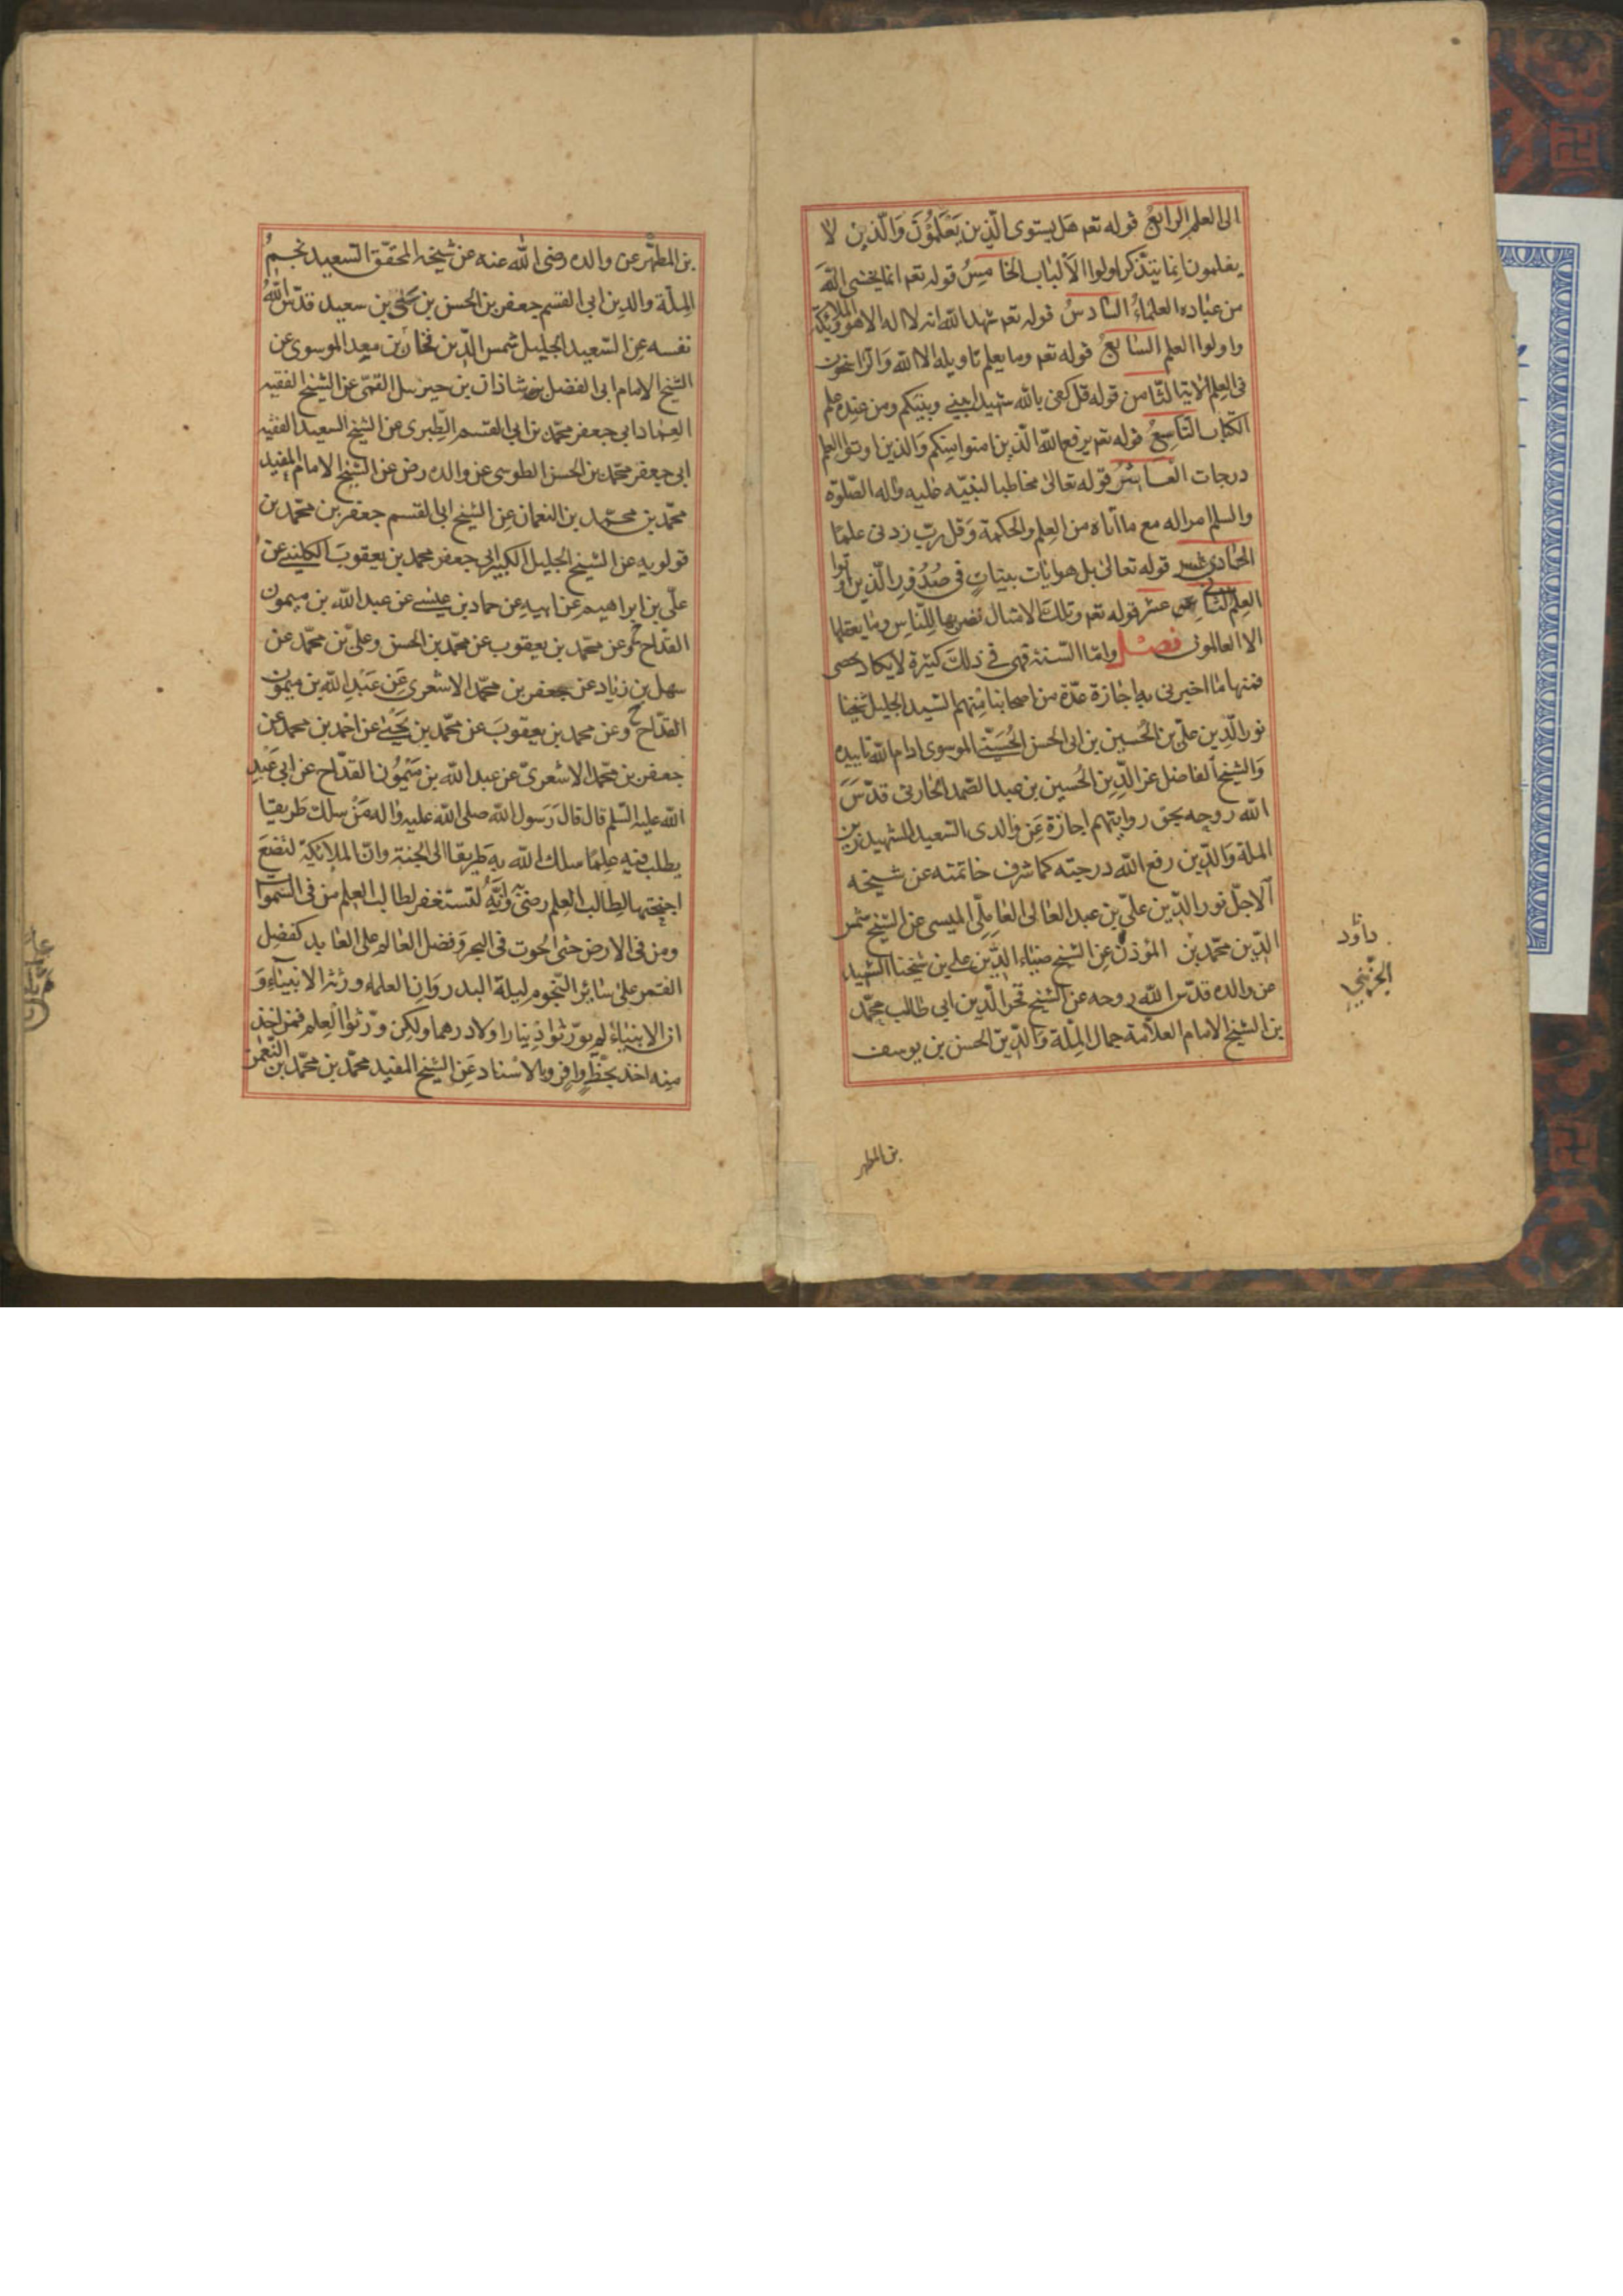 الى العلم الرابع قوله تعم هل يستوى الّذين يَعْلَمُونَ وَالّذين لا
يعلمون انما يتذكر اولوا الألباب الخامسُ قوله تعم انما يخشى اللهَ
من عباده العلماءُ السادسُ قوله تعم شهد الله انه لا اله الا هو والملائكة
واولوا العلم السابعُ قوله تعم وما يعلم تاويله الا الله وَالرّاسخون
فى العِلمِ الاية الثّامن قوله قل كفى بالله شهيدا بينى وبينكم ومن عنده علم
الكتاب التاسعُ قوله تعم يرفع اللّه الّذين امنوا منكم وَالذين اوتوا العلم
درجات العاشرُ قوله تعالىٰ مخاطبا لنبيّه عليه واله الصّلوة
والسلم امرا له مع ما آتاه من العِلمِ والحكمة وَقل ربّ زدنى علمًا
الحادى عشر قوله تعالىٰ بل هو ايٰات بينٰاتٍ فى صُدُورِ الّذين اوتوا
العلم الثانى عشر قوله تعم وتلك الامثال نضربها للنّاسِ وما يعقلها
الا العالمون فصْل وامّا السّنة فهى فى ذلك كثيرة لا يكاد تحصى
فمنها ما اخبرنى به اجازة عدّة من اصحابنا منهم السّيد الجليل شيخنا
نور الّدين علىّ بن الحُسين بن ابى الحسن الحُسَيْنى الموسوى ادام اللّه تاييده
وَالشيخ الفاضل عز الدّين الحُسين بن عبد الصّمد الحٰارثى قدّسَ
اللّه روحه بحق روايتهم اجازة عَن وٰالدى السّعيد الشهيد زين
الملة وَالدّين رفع اللّه درجته كما شرف خاتمته عن شيخه
الاجلّ نور الدّين علىّ بن عبد العٰالى العٰاملّى الميسى عن الشيخ شمس
الدّين محمّد بن المؤذن عن الشيخ ضيٰاء الدّين على بن شيخنا الشهيد
عن والده قدّس اللّه روحه عن الشيخ فخر الّدين ابى طالب محمّد
بن الشيخ الامام العلاّمة جمال الملّة وَالدّين الحسن بن يوسف
داود
الجزينى
بن المطهر
بن المطهّر عن والده رضى اللّه عنه عن شيخه المحقّق السّعيد نجم
الملّة والدين ابى القسم جعفر بن الحسن بن يحيى بن سعيد قدّس اللّهُ
نفسه عن السّعيد الجليل شمس الدّين فخار بن معد الموسوى عن
الشيخ الامام ابى الفضل شاذان بن جبرئيل القمّى عن الشيخ الفقيه
العماد ابى جعفر محمّد بن ابى القسم الطّبرى عن الشيخ السعيد الفقيه
ابى جعفر محمّد بن الحسن الطوسى عن والده رض عن الشيخ الامام المفيد
محمّد بن محمّد بن النعمان عن الشيخ ابى القسم جعفر بن محمّد بن
قولويه عن الشيخ الجليل الكبير ابى جعفر محمد بن يعقوبَ الكلينى عن
علّى بن ابراهيم عن ابيه عن حماد بن عيسى عن عبد اللّه بن ميمون
القداح ح وعن محمّد بن يعقوب عن محمّد بن الحسن وعلىّ بن محمّد عن
سهل بن زياد عن جعفر بن محمّد الاشعرى عَن عَبْد اللّه بن ميمون
القدّاح ح وعن محمد بن يعقوبَ عن محمّد بن يَحْيىٰ عن احمد بن محمد عن
جعفر بن محمّد الاشعرىّ عن عبد اللّه بن مَيْمُون القدّاح عن ابى عَبْد
اللّه عليه السّلم قال قال رَسول اللّه صلى اللّه عليه واله مَنْ سلك طَريقا
يطلب فيه عِلمًا سلك اللّه به طَريقا الى الجنة وانّ الملائكة لتضعَ
اجنحتها لطٰالب العِلم رضىً به وَانَّهُ لتستغفر لطالب العلم من فى السّموات
ومن فى الارض حتى الحُوت فى البحر وَفضل العٰالم على العٰابد كفضل
القمر علىٰ سٰائر النّجوم ليلة البدر وَان العلمٰاء ورَثة الانبيٰاء وَ
ان الانبيٰاءَ لم يورّثوا دينارا ولا درهما ولٰكن ورّثوا العلم فمن اخذ
منه اخذ بحَظٍّ وٰافرٍ وبالاسْناد عَن الشيخ المفيد محمّد بن محمّد بن النّعمٰن